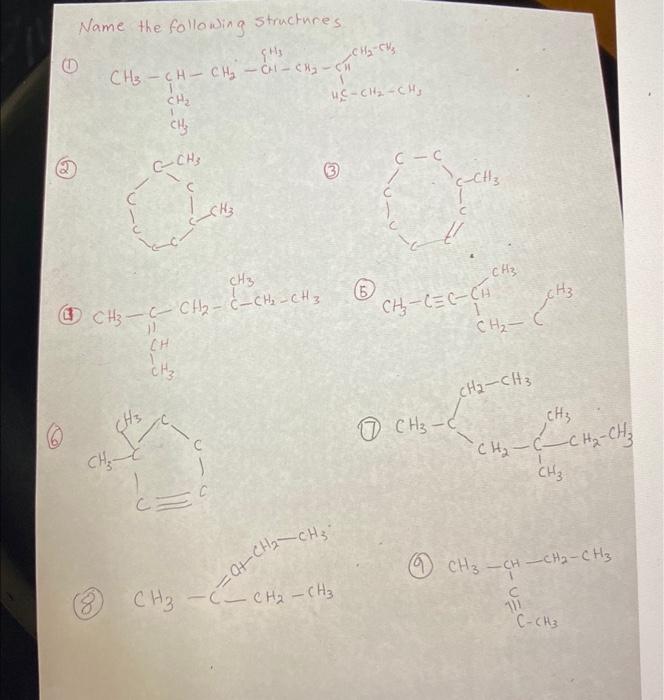 Name the following structures
①
CH3
CH2-CH3
CH3 - CH - CH2 - CH - CH2 - CH
CH2
CH3
H2C - CH2 - CH3
② C - CH3
C
C
C - CH3
C
C
C
③ C - C
C
C - CH3
C
C
C
④ CH3 - C - CH2 - C - CH2 - CH3
CH3
CH
CH3
⑤ CH3 - C≡C - CH
CH3
CH2 - C
CH3
⑥ CH3
C
CH3 - C
C
C ≡ C
⑦ CH3 - C
CH2 - CH3
CH3
CH2 - C - CH2 - CH3
CH3
⑧ CH3 - C - CH2 - CH3
= CH - CH2 - CH3
⑨ CH3 - CH - CH2 - CH3
C
|||
C - CH3